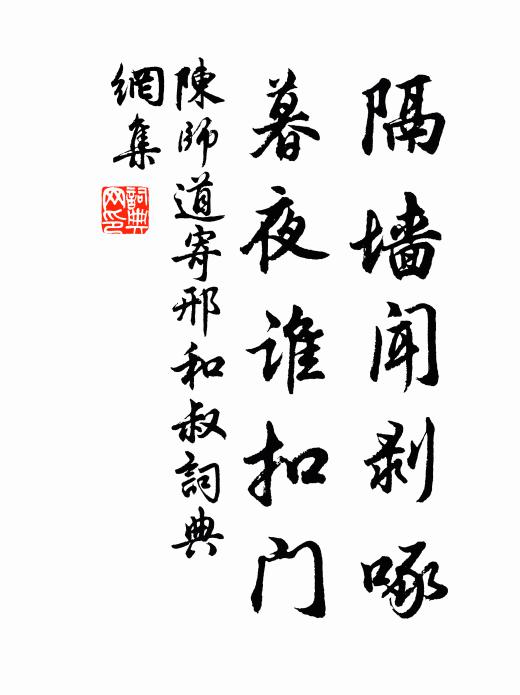 隔墙闻剥啄
暮夜谁扣门
陳師道寄邢和叔詞典
網集
詞典
网印